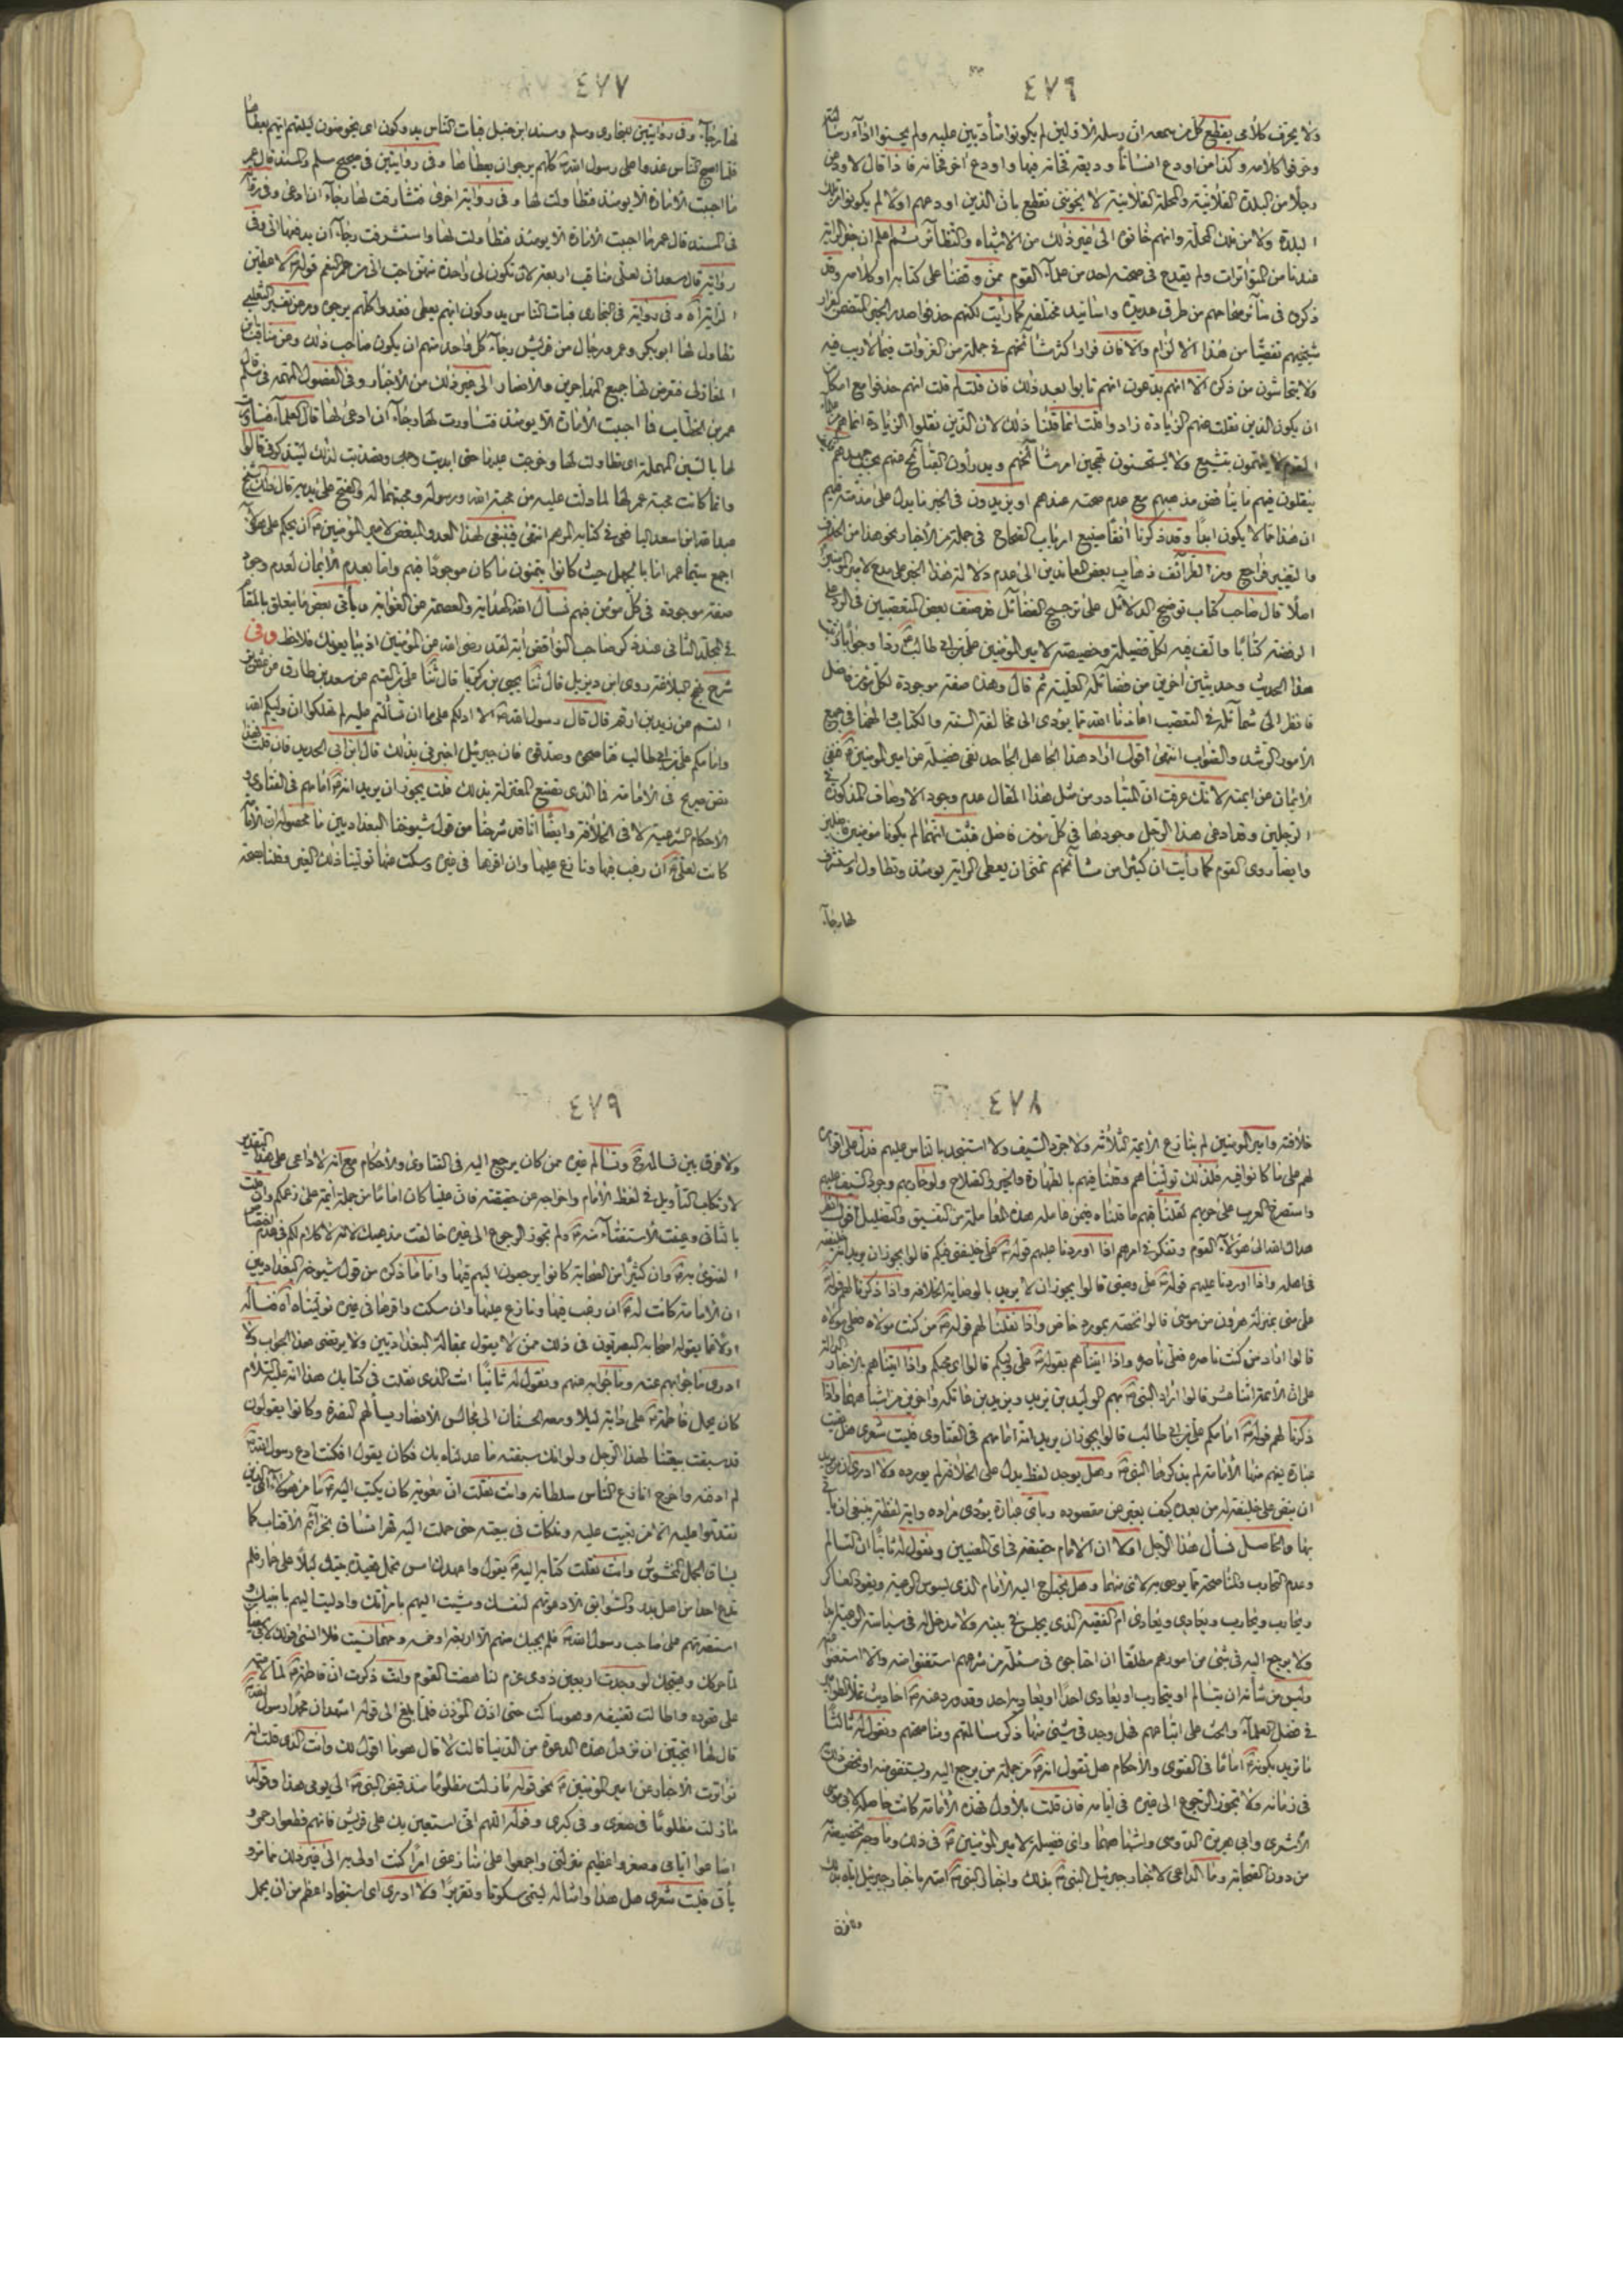 ٤٧٦
ولا يحرف كلامي يقطع كل من سمعه ان رسله الاولين لم يكونوا متأدبين عليه ولم يحسنوا اداء
وحرفوا كلامه وكذا من اودع انسانا وديعة فخانه فيها واودع اخر فخانه فاذا قال لاودعن
رجلا من البلدة الفلانية والمحلة الفلانية لا يخونني نقطع بان الذين اودعهم اولا لم يكونوا من تلك
البلدة ولا من تلك المحلة وانهم خانوه الى غير ذلك من الاشباه والنظائر ثم اعلم ان خبر الراية
عندنا من المتواترات ولم يقدح في صحته احد من علماء القوم ممن وقفنا على كتابه او كلامه وقد
ذكروه في صحاحهم من طرق عديدة واسانيد مختلفة كما رأيت لكنهم حذفوا صدر الخبر المتضمن لفرار
شيخيهم تفصيا من هذا الالزام والا فان فرار اكثر مشائخهم في جملة من الغزوات مما لا ريب فيه
ولا يتحاشون من ذكره الا انهم يدعون انهم تابوا بعد ذلك فان قلت لم قلت انهم حذفوا مع امكان
ان يكون الذين نقلت عنهم الزيادة زادوا قلت انما قلنا ذلك لان الذين نقلوا الزيادة انما هم من
القوم لا يتهمون بتشيع ولا يستحسنون تهجين امر مشائخهم
ينقلون فيهم ما يناقض مذهبهم مع عدم صحته عندهم او يزيدون في الخبر ما يدل على مذمتهم
ان هذا مما لا يكون ابدا وقد ذكرنا آنفا صنيع ارباب الصحاح في جملة من الاخبار نحو هذا من الحذف
والتغيير فراجع ومن الطرائف ذهاب بعض المعاندين الى عدم دلالة هذا الخبر على مدح لامير المؤمنين
اصلا قال صاحب كتاب توضيح الدلائل على ترجيح الفضائل قد صنف بعض المتعصبين في الرد على
الرفضة كتابا والف فيه لكل فضيلة وخصيصة لامير المؤمنين علي بن ابي طالب ردا وجوابا
هذا الحديث وحديثين اخرين من فضائله العلية ثم قال وهذه صفة موجودة لكل مؤمن فاضل
فانظر الى شمائله في التعصب اعاذنا الله مما يؤدي الى مخالفة السنة والكتاب الهمنا في جميع
الامور الرشد والصواب انتهى اقول اراد هذا الجاهل الجاحد نفي فضيلة عن امير المؤمنين فنفى
الايمان عن ايمته لانك عرفت ان المتبادر من مثل هذا المقال عدم وجود الاوصاف المذكورة في
الرجلين وقد ادعى هذا الرجل وجودها في كل مؤمن فاضل فثبت انهما لم يكونا مؤمنين فاضلين
وايضا روى القوم كما رأيت ان كثيرا من مشائخهم تمنى ان يعطى الراية يومئذ وتطاول واستشرف
لها رجاء
٤٧٧
لها رجاء وفي روايتين للبخاري ومسلم ومسند ابن حنبل فبات الناس يدوكون اي يخوضون ليلتهم ايهم يعطاها
فلما اصبح الناس غدوا على رسول الله كلهم يرجو ان يعطاها وفي روايتين في صحيح مسلم والمسند قال عمر
ما احببت الامارة الا يومئذ فتطاولت لها وفي رواية اخرى فتشارفت لها رجاء ان ادعى وفي رواية
في المسند قال عمر ما احببت الامارة الا يومئذ فتطاولت لها واستشرفت رجاء ان يدفعها الي وفي
رواية قال سعد ان لعلي مناقب اربعة لان تكون لي واحدة منهن احب الي من حمر النعم قوله لاعطين
الراية اه وفي رواية في البخاري فبات الناس يدوكون ايهم يعطى فغدوا كلهم يرجوه وعن تفسير الثعلبي
تطاول لها ابو بكر وعمر ورجال من قريش رجاء كل واحد منهم ان يكون صاحب ذلك وعن مناقب ابن
المغازلي فتعرض لها جميع المهاجرين والانصار الى غير ذلك من الاخبار وفي الفصول المهمة في مسلم قال
عمر بن الخطاب فما احببت الامارة الا يومئذ فتساورت لها رجاء ان ادعى لها قال العلماء فتساورت
لها بالسين المهملة اي تطاولت لها وحرصت عليها حتى ابديت وجهي وتصديت لذلك ليتذكرني قالوا
وانما كانت محبة عمر لها لما دلت عليه من محبة الله ورسوله ومحبتهما له والفتح على يديه قال ذلك الشيخ
عبد الله بن اسعد اليافعي في كتابه المرهم انتهى فينبغي لهذا العدو المبغض لامير المؤمنين ان يحكم على هؤلاء
اجمع سيما عمر اما بالجهل حيث كانوا يتمنون ما كان موجودا فيهم واما بعدم الايمان لعدم وجود
صفة موجودة في كل مؤمن فيهم نسأل الله الهداية والعصمة من الغواية ويأتي بعض ما يتعلق بالمقام
في المجلد الثاني عند ذكر صاحب النواقض آية لقد رضي الله عن المؤمنين اذ يبايعونك فلاحظ وفي
شرح نهج البلاغة روى ابن ديزيل قال ثنا يحيى بن زكريا قال ثنا علي بن القسم عن سعد بن طارق عن عثمان بن
القسم عن زيد بن ارقم قال قال رسول الله الا ادلكم على ما ان تسالتم عليه لم تهلكوا ان وليكم الله
وامامكم علي بن ابي طالب فناصحوه وصدقوه فان جبرئيل اخبرني بذلك قال ابن ابي الحديد فان قلت هذا
نص صريح في الامامة فما الذي تصنع المعتزلة بذلك قلت يجوز ان يريد انه امامهم في الفتاوى و
الاحكام الشرعية لا في الخلافة وايضا انا قد شرحنا من قول شيوخنا البغداديين ما محصوله ان الامامة
كانت لعلي ان رغب فيها ونازع عليها وان اقرها في غيره وسكت عنها تولينا ذلك الغير وقلنا بصحة
٤٧٨
خلافته وامير المؤمنين لم ينازع الائمة الثلاثة ولا جرد السيف ولا استنجد بالناس عليهم فدل على اقراره
لهم على ما كانوا فيه فلذلك توليناهم وقلنا فيهم بالطهارة والخير والصلاح ولو حاربهم وجرد السيف عليهم
واستصرخ العرب على حربهم لقلنا فيهم ما قلناه فيمن عامله هذه المعاملة من التفسيق والتضليل اقول انظر
هداك الله الى هؤلاء القوم وتفكر في امرهم اذا اوردنا عليهم قوله علي خليفتي فيكم قالوا يجوز ان يريد انه خليفته
في اهله واذا اوردنا عليهم قوله علي وصيي قالوا يجوز ان لا يريد بالوصاية الخلافة واذا ذكرنا لهم قوله
علي مني بمنزلة هرون من موسى قالوا نخصه بمورد خاص واذا نقلنا لهم قوله من كنت مولاه فعلي مولاه
قالوا اراد من كنت ناصره فعلي ناصره واذا اتيناهم بقوله علي وليكم قالوا اي محبكم واذا اتيناهم بالاخبار الدالة
على ان الائمة اثنا عشر قالوا اراد النبي بهم الوليد بن يزيد ويزيد بن عاتكة واخرين من اشباههما واذا
ذكرنا لهم قوله امامكم علي بن ابي طالب قالوا يجوز ان يريد انه امامهم في الفتاوى فليت شعري هل بقيت
عبارة يفهم منها الامامة لم يذكرها النبي وهل يوجد لفظ يدل على الخلافة لم يورده ولا ادري من يريد
ان ينص على خليفته من بعده كيف يعبر عن مقصوده وباي عبارة يؤدي مراده واية لفظة ينبغي ان يأتي
بها والحاصل نسأل هذا الرجل اولا ان الامام حقيقة في اي المعنيين ونقول له ثانيا ان التسالم
وعدم التحارب والمناصحة مما يوصى به لاي منهما وهل يحتاج اليه الامام الذي يسوس الرعية ويقود العساكر
ويحارب ويحارب ويعادي ويعادى ام الفقيه الذي يجلس في بيته ولا مدخل له في سياسة الرعية
ولا يرجع اليه في شيء من امورهم مطلقا ان احتاجوا في مسئلة من شرعهم استفتوا منه والا استغنوا عنه
وليس من شأنه ان يتسالم او يتحارب او يعادي احدا او يعاديه احد وقد ورد عنه احاديث
في فضل العلماء والحث على اتباعهم فهل وجد في شيء منها ذكر مسالمتهم ومناصحتهم ونقول له ثالثا
ما تريد بكونه اماما في الفتوى والاحكام هل تقول انه من جملة من يرجع اليه ويستفتى منه او تخص ذلك
في زمانه ولا تجوز الرجوع الى غيره في ايامه فان قلت بالاول فهذه الامامة كانت حاصلة لابي موسى
الاشعري وابي هريرة الدوسي واشباههما واي فضيلة لامير المؤمنين في ذلك وما وجه تخصيصه
من دون الصحابة وما الداعي لاخبار جبرئيل النبي بذلك واخبار النبي امته باخبار جبرئيل اياه بذلك
٤٧٩
ولا فرق بين تسالمه وتسالم غيره ممن كان يرجع اليه في الفتاوى والاحكام مع انه لا داعي على هذا التقدير
لارتكاب التأويل في لفظ الامام واخراجه عن حقيقته فان عليا كان اماما من جملة ائمة على زعمكم وان قلت
بالثاني وعينت الاستفتاء منه ولم تجوز الرجوع الى غيره خالفت مذهبك لانه لا كلام لكم في عدم اختصاص
الفتوى به وان كثيرا من الصحابة كانوا يرجعون اليهم فيها واما ما ذكره من قول شيوخه البغداديين
ان الامامة كانت له ان رغب فيها ونازع عليها وان سكت واقرها في غيره توليناه اه فنسأله
اولا ما يقوله اصحابه البصريون في ذلك ممن لا يقول بمقالة البغداديين ولا يرتضي هذا الجواب ولا
ادري ما جوابهم عنه وما جوابه عنهم ونقول له ثانيا انت الذي نقلت في كتابك هذا انه عليه السلام
كان يحمل فاطمة على دابة ليلا ومعه الحسنان الى مجالس الانصار يسألهم النصرة وكانوا يقولون
قد سبقت بيعتنا لهذا الرجل ولو انك سبقته ما عدلناه بك فكان يقول افكنت ادع رسول الله
لم ادفنه واخرج انازع الناس سلطانه وانت نقلت ان معوية كان يكتب اليه ما من هؤلاء الذين
تقدموا عليه الا من بغيت عليه وتلكأت في بيعته حتى حملت اليه قهرا تساق بخزائم الاقتساب كما
يساق الجمل المخشوش وانت نقلت كتابه اليه يقول واعهدك امس تحمل قعيدة بيتك ليلا على حمار فلم
تدع احدا من اهل بدر والسوابق الا دعوتهم لنفسك ومشيت اليهم بامرأتك وادليت اليهم بابنيك و
استنصرتهم على صاحب رسول الله فلم يجبك منهم الا اربعة او خمسة ومهما نسيت فلا انسى قولك لابي سفيان
لما حركك وهيجك لو وجدت اربعين ذوي عزم لناهضت القوم وانت ذكرت ان فاطمة لما لامته
على قعوده واطالت تعنيفه وهو ساكت حتى اذن المؤذن فلما بلغ الى قوله اشهد ان محمدا رسول الله
قال لها اتحبين ان تزول هذه الدعوة من الدنيا قالت لا قال هو ما اقول لك وانت الذي قلت انه
تواترت الاخبار عن امير المؤمنين نحو قوله ما زلت مظلوما منذ قبض النبي الى يومي هذا وقوله
ما زلت مظلوما في صغري وفي كبري وقوله اللهم اني استعينك على قريش فانهم قطعوا رحمي و
اضاعوا ايامي وصغروا عظيم منزلتي واجمعوا على منازعتي امرا كنت اولى به الى غير ذلك مما مر و
يأتي فليت شعري هل هذا وامثاله يسمى سكوتا وتقريرا ولا ادري اي استنجاد اعظم من ان يحمل